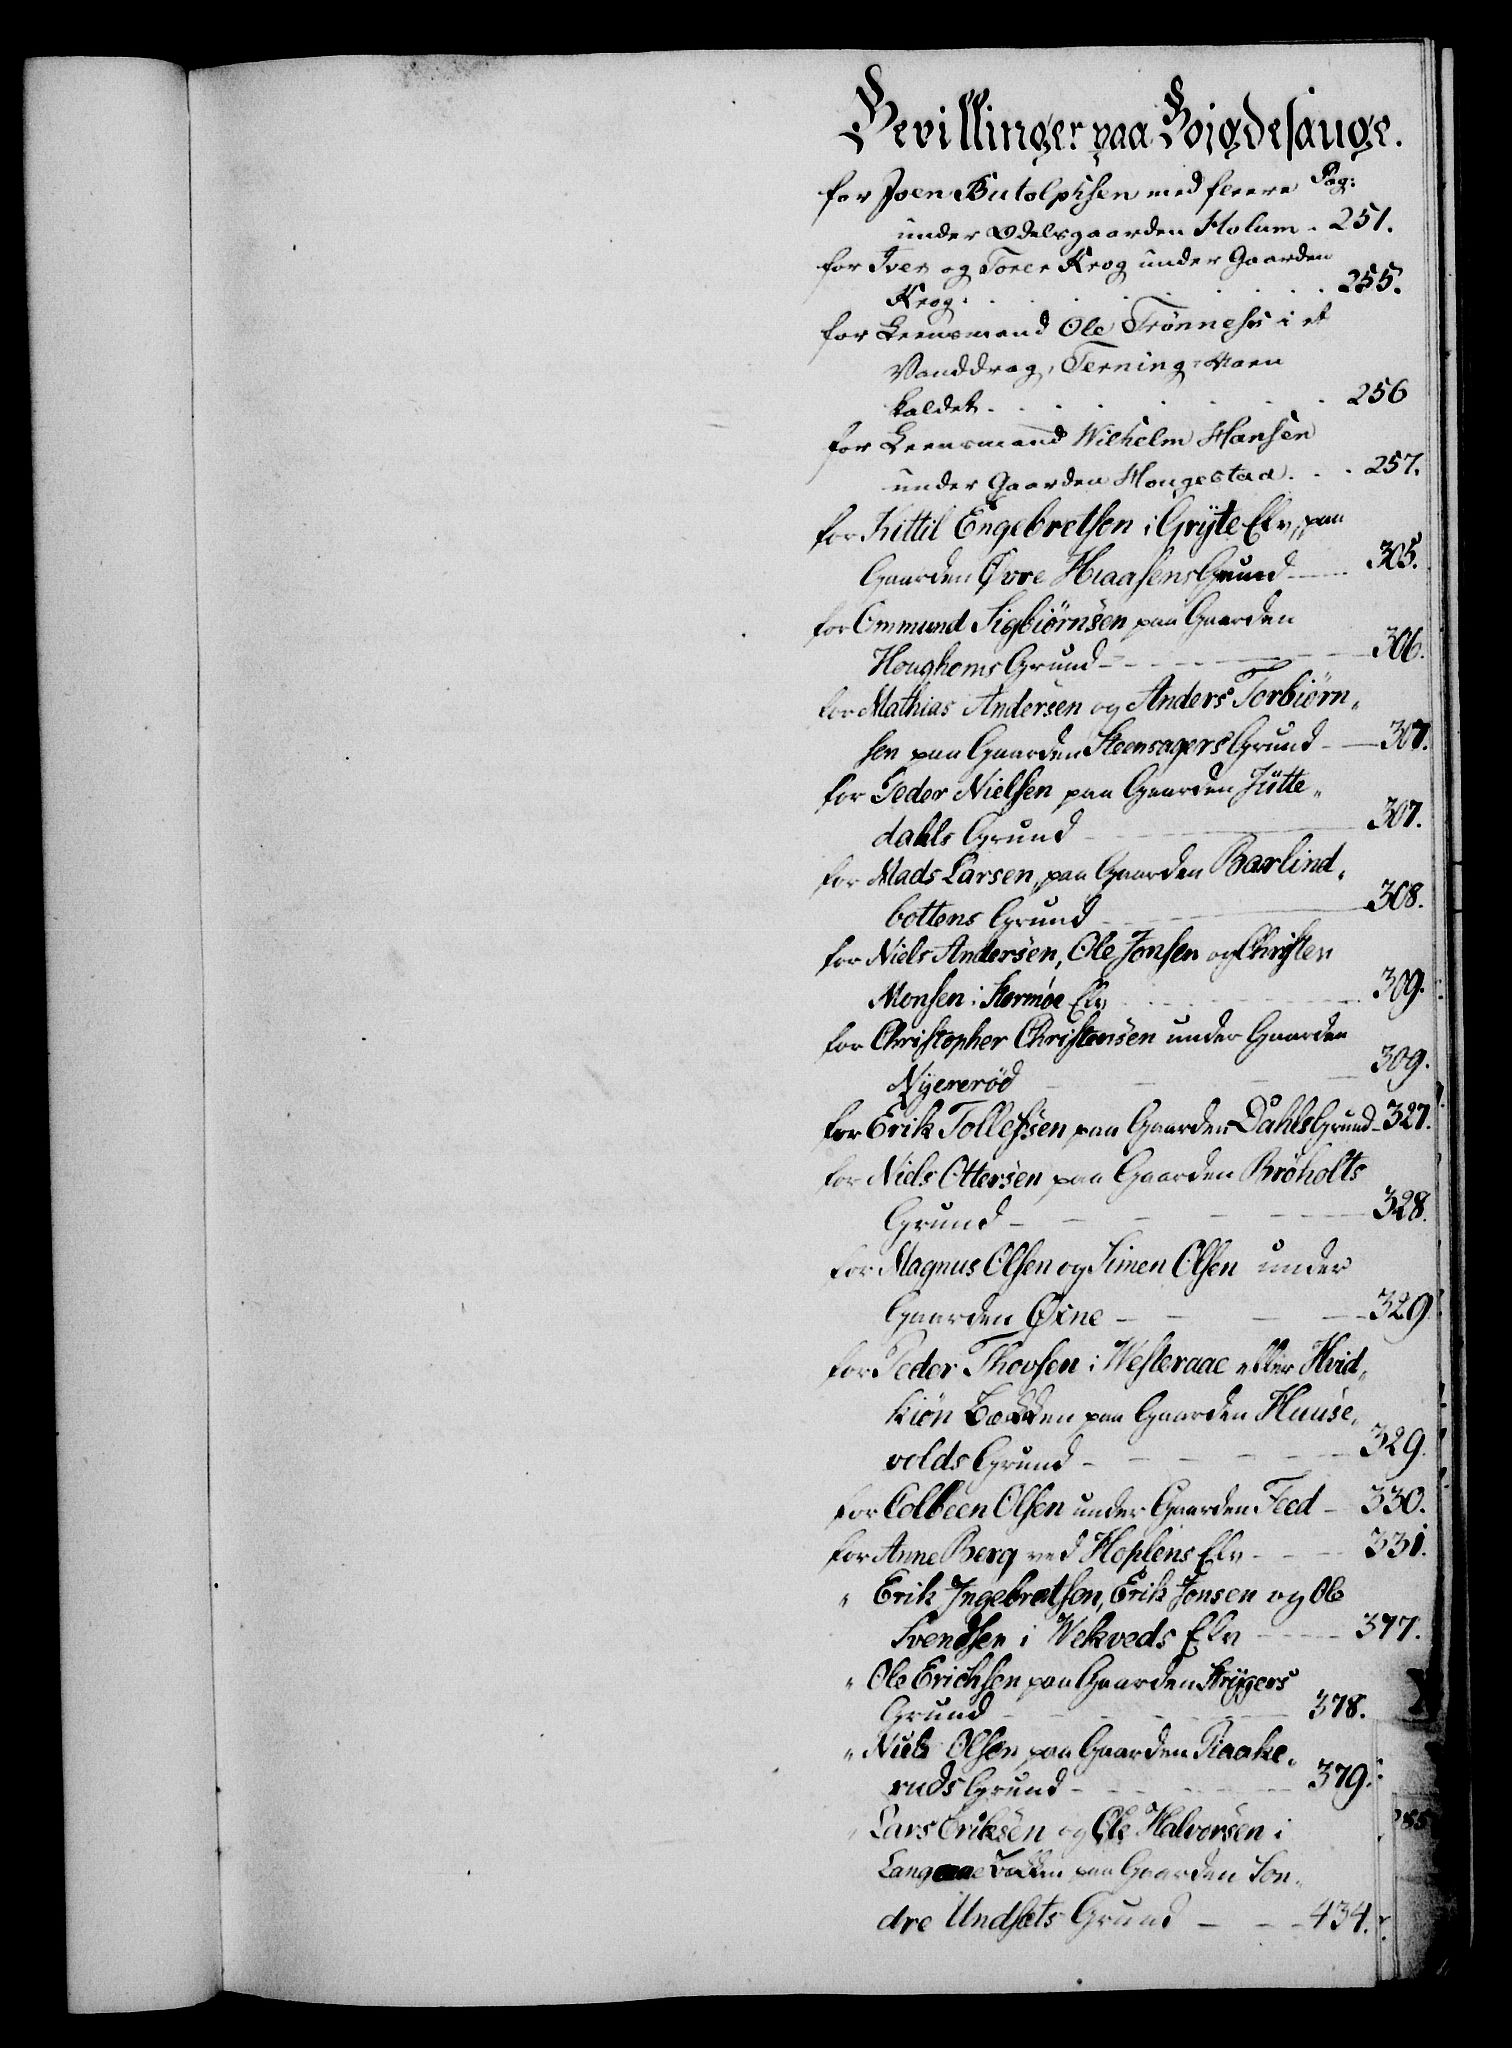 Bevillinger paa Boigdesauge.
Pag:
for Joen Butolphsen med fleere
under Odelsgaarden Holum - 251.
for Iver og Torer Krog under Gaarden
Krog. . . . . . . . 255.
for Leensmand Ole Trønnes i et
Vanddrag, Terning-Aaen
kaldet. . . . . . . 256
for Leensmand Wilhelm Hansen
under Gaarden Hougestad. . . 257.
for Kittil Engebretsen i Gryte Elv, paa
Gaarden Øvre Haasens Grund - 305.
for Ommund Sigbiørnsen paa Gaarden
Houghoms Grund - - - - 306.
for Mathias Andersen og Anders Torbiørn„
sen paa Gaarden Steensagers Grund - 307.
for Peder Nielsen paa Gaarden Jütte„
dahls Grund - - - 307.
for Mads Larsen, paa Gaarden Barlind„
bottens Grund - - - 308.
for Niels Andersen, Ole Jonsen og Christen
Monsen i Stormoe Elv - - - 309.
for Christopher Christensen under Gaarden
Nyererød - - - 309.
for Erik Tollefsen paa Gaarden Dahls Grund - 327.
for Niels Ottersen paa Gaarden Brøholts
Grund - - - - - 328.
for Magnus Olsen og Simen Olsen under
Gaarden Øxne - - - 329.
for Peder Thovsen i Westeraae eller Hvid„
kiøn Bækken paa Gaarden Huuse„
volds Grund - - - - 329.
for Colbeen Olsen under Gaarden Feed - 330.
for Anne Berg ved Hoplens Elv - - - 331.
„ Erik Ingebretsen, Erik Jonsen og Ole
Svendsen i Wekveds Elv - - - 377.
„ Ole Erichsen paa Gaarden Strygers
Grund - - - - 378.
„ Niels Olsen paa Gaarden Raake„
ruds Grund - - - - 379.
„ Lars Eriksen og Ole Halvorsen i
Langaae Bækken paa Gaarden Søn„
dre Undsets Grund - - - 434.